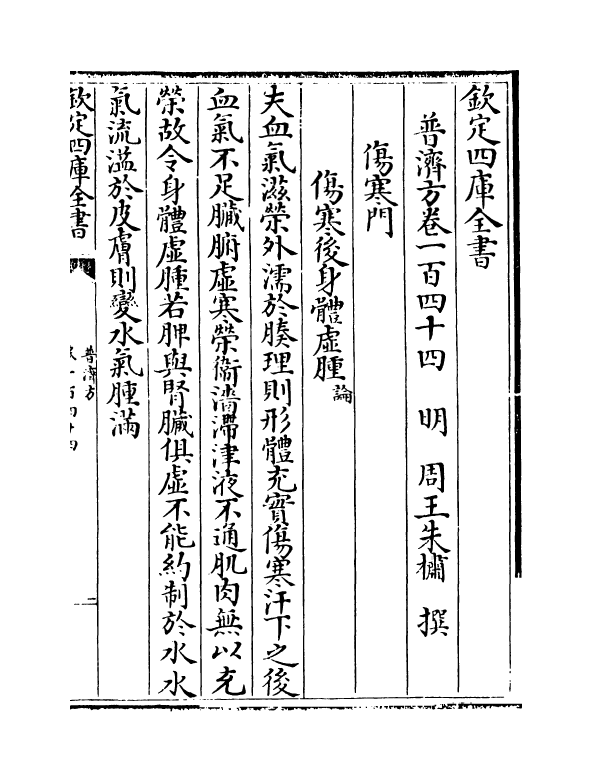 欽定四庫全書
普濟方卷一百四十四　明　周王朱橚　撰
傷寒門
傷寒後身體虛腫論
夫血氣滋榮外濡於腠理則形體充實傷寒汗下之後
血氣不足臟腑虛寒榮衞濇滯津液不通肌肉無以充
榮故令身體虛腫若脾與腎臟俱虛不能約制於水水
氣流溢於皮膚則變水氣腫滿
欽定四庫全書
普濟方
卷一百四十四
一